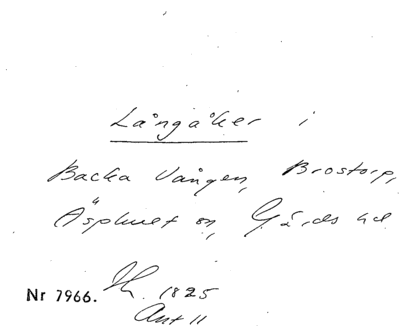 Långåker i
Backa Vången, Brostorp,
Äsphult sn, Gärds hd
Nr 7966. 1825
Akt 11